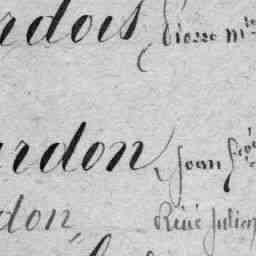 rdois, Pierre M
ardon, Jean
don, René Julien